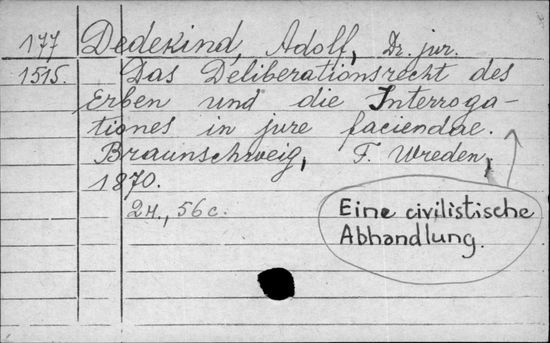 177 Dedekind, Adolf, Dr. jur.
1515. Das Deliberationsrecht des
Erben und die Interroga-
tiones in jure faciendae.
Braunschweig, F. Wreden,
1870.
2н., 56 с.
Eine civilistische
Abhandlung.